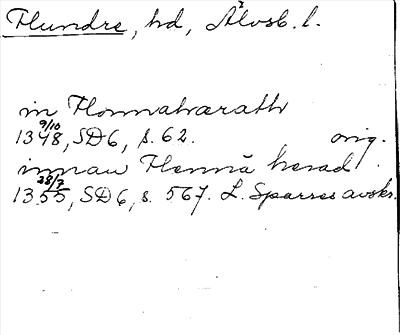 Flundre, hd, Älvsb. l.
in Flonnahærath
9/10
1348, SD 6, s. 62. orig.
innan Flennā herad
28/7
1355, SD 6, s. 567. L. Sparres avskr.